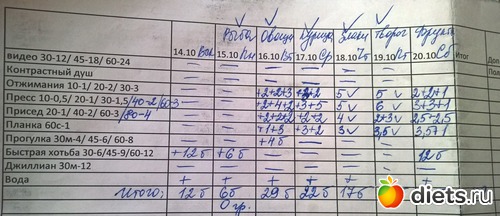 Рыба Овощи Курица Злаки Творог Фрукты
14.10 Вск 15.10 Пн 16.10 Вт 17.10 Ср 18.10 Чт 19.10 Пт 20.10 Сб Итог Доп
видео 30-12/ 45-18/ 60-24 — — — — — — —
Контрастный душ — — — — — — —
Отжимания 10-1/ 20-2/ 30-3 — — +2+2+3 +2+2 5 v 5 v 2+2+1
Пресс 10-0,5/ 20-1/ 30-1,5/40-2/60-3 — — +2+4+2 +3+5 5 v 6 v 3+3+1
Присед 20-1/ 40-2/ 60-3/80-4 — — +2+2+2 +2+2 4 v 2+3 v 2,5+2,5
Планка 60с-1 — — +1+3 +3+2 3 v 3,5 v 3,5+1
Прогулка 30м-4/ 45-6/ 60-8 — — +4б — — — —
Быстрая хотьба 30-6/45-9/60-12 +12б +6б — — — — 12б
Джиллиан 30м-12 — — — — — — —
Вода + + + + + + +
Итого: 12б 6б 29б 22б 17б
0 гр.
diets.ru